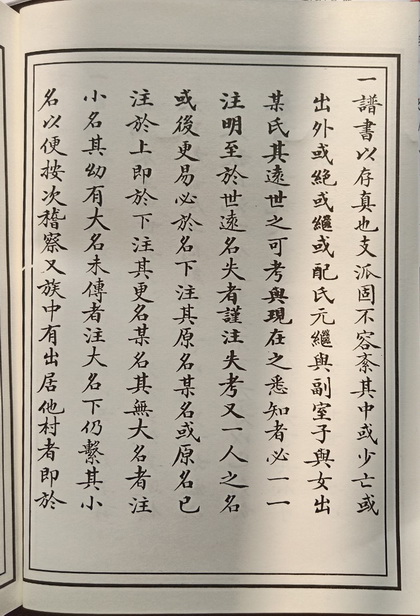 一譜書以存真也支派固不容紊其中或少亡或
出外或絶或繼或配氏元繼與副室子與女出
某氏其遠世之可考與現在之悉知者必一一
注明至於世遠名失者謹注失考又一人之名
或後更易必於名下注其原名某名或原名已
注於上即於下注其更名某名其無大名者注
小名其幼有大名未傳者注大名下仍繫其小
名以便按次稽察又族中有出居他村者即於